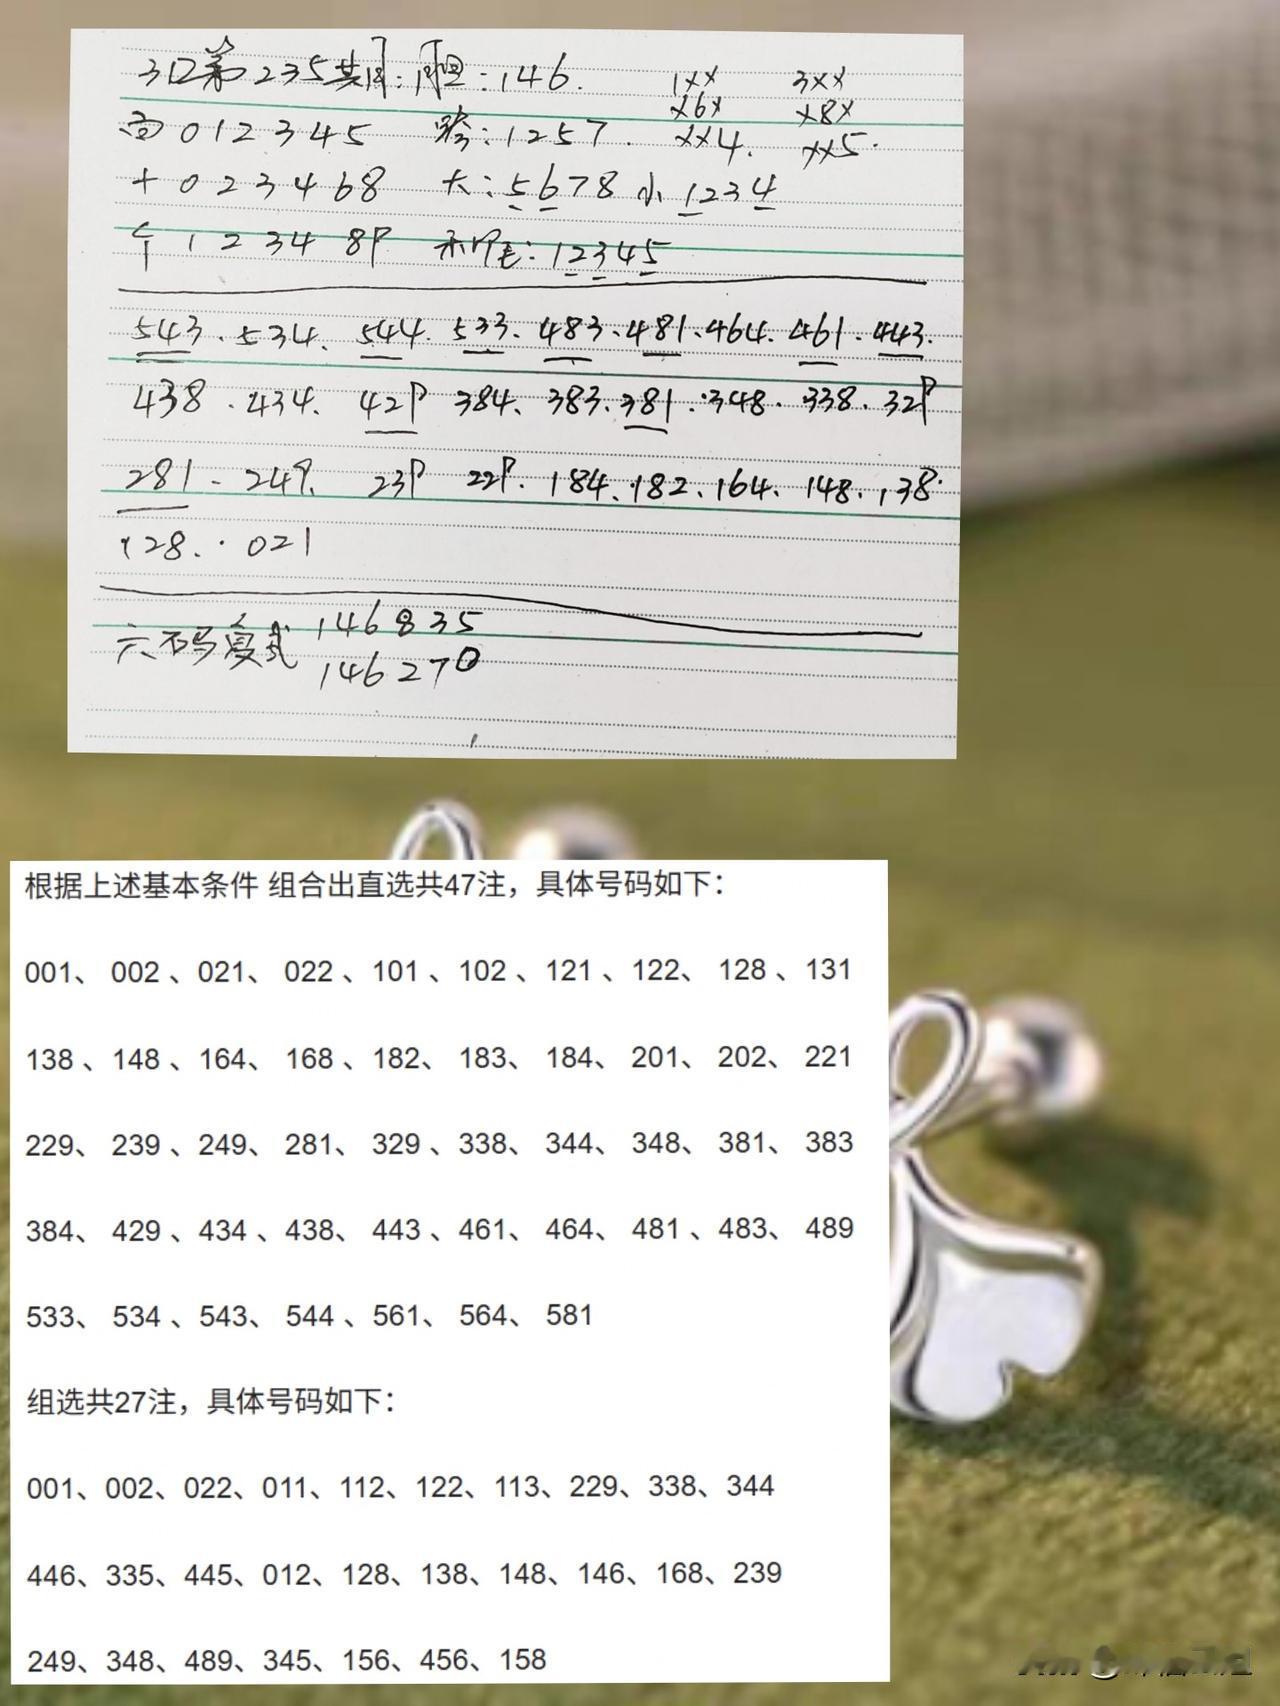 3D第235共月:胆:146. 1×× 3××
×6× ×8×
百012345 跨:1257. ××4. ××5.
十023468 大:5678 小1234
个123489 和尾:12345
543.534.544.533.483.481.464.461.443.
438.434.429 384.383.381.348.338.329
281-249.239 229.184.182.164.148.138.
128.021
六不码复式 146835
146270
根据上述基本条件 组合出直选共47注，具体号码如下：
001、 002 、021、 022 、101 、102 、121 、122、 128 、131
138 、148 、164、 168 、182、 183、 184、 201、 202、 221
229、 239 、249、 281、 329 、338、 344、 348、 381、 383
384、 429 、434 、438、 443 、461、 464、 481 、483、 489
533、 534 、543、 544 、561、 564、 581
组选共27注，具体号码如下：
001、002、022、011、112、122、113、229、338、344
446、335、445、012、128、138、148、146、168、239
249、348、489、345、156、456、158